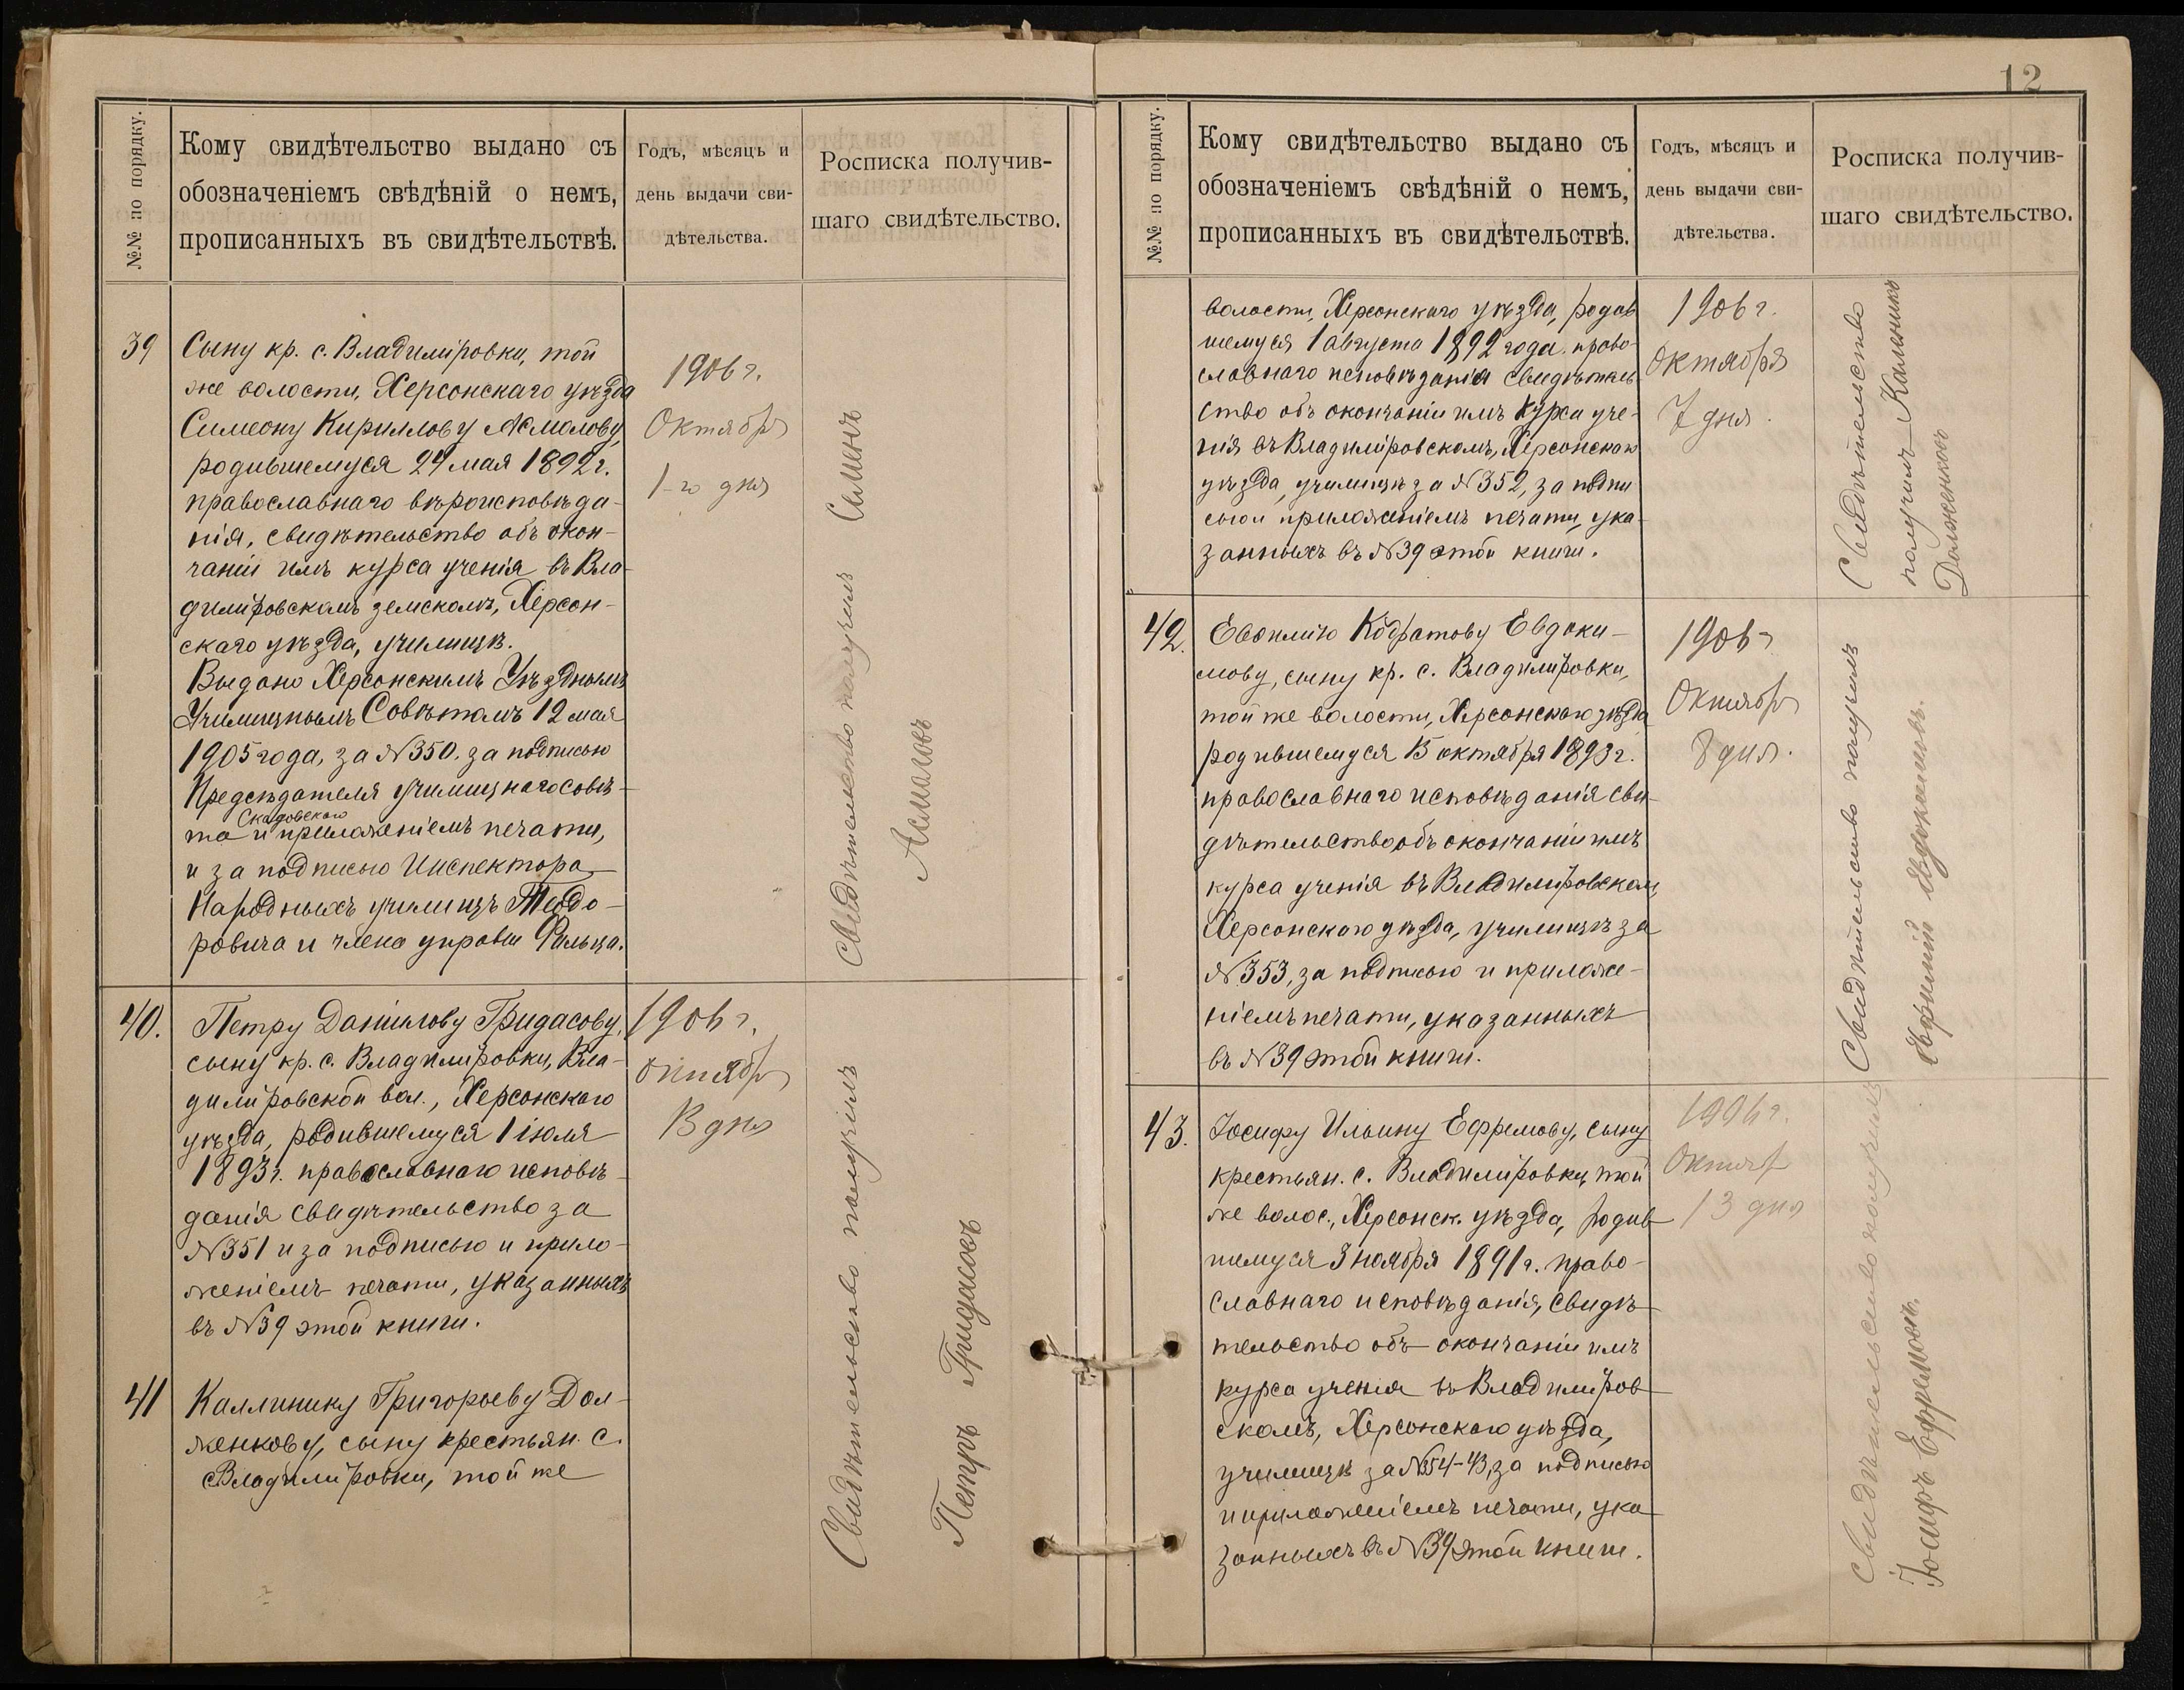 №№ по порядку.
Кому свидѣтельство выдано съ
обозначеніемъ свѣдѣній о немъ,
прописанныхъ въ свидѣтельствѣ.
Годъ, мѣсяцъ и
день выдачи сви-
дѣтельства.
Росписка получив-
шаго свидѣтельство.
39
Сыну кр. с. Владиміровки, той
же волости, Херсонскаго уѣзда
Симеону Кириллову Асмолову,
родившемуся 24 мая 1892 г.
православнаго вѣроисповѣда-
нія, свидѣтельство объ окон-
чаніи имъ курса ученія въ Вла-
диміровскомъ земскомъ, Херсон-
скаго уѣзда, училищѣ.
Выдано Херсонскимъ Уѣзднымъ
Училищнымъ Совѣтомъ 12 мая
1905 года, за №350. за подписью
Предсѣдателя училищнаго совѣ-
Скадовскаго
та и приложеніемъ печати,
и за подписью Инспектора
Народныхъ училищъ Теодо-
ровича и члена управы Фальца.
1906 г.
Октября
1-го дня
Свидѣтельство получилъ Семинъ
Асмаловъ
40.
Петру Данилову Гридасову,
сыну кр. с. Владиміровки, Вла-
диміровской вол., Херсонскаго
уѣзда, родившемуся 1 іюля
1893 г. православнаго исповѣ-
данія свидѣтельство за
№351 и за подписью и прило-
женіемъ печати, указанныхъ
въ №39 этой книги.
1906 г.
октябр
13 дня
Свидѣтельство получилъ
Петръ Гридасовъ
41
Каллинику Григорьеву Дол-
женкову, сыну крестьян. с.
Владиміровки, той же
12
№№ по порядку.
Кому свидѣтельство выдано съ
обозначеніемъ свѣдѣній о немъ,
прописанныхъ въ свидѣтельствѣ.
Годъ, мѣсяцъ и
день выдачи сви-
дѣтельства.
Росписка получив-
шаго свидѣтельство.
волости, Херсонскаго уѣзда, родив
шемуся 1 августа 1892 года. право-
славнаго исповѣданія свидѣтель
ство объ окончаніи имъ курса уче-
нія въ Владиміровскомъ, Херсонскаго
уѣзда, училищѣ за №352, за подпи
сью и приложеніемъ печати, ука-
занныхъ въ №39 этой книги.
1906 г.
Октября
7 дня.
Свидѣтельство
получилъ Калиникъ
Долженковъ
42.
Евфимію Кодратову Евдоки-
мову, сыну кр. с. Владиміровки,
той же волости, Херсонскаго уѣзда
родившемуся 15 октября 1893 г.
православнаго исповѣданія сви-
дѣтельство объ окончаніи имъ
курса ученія въ Владиміровском,
Херсонскаго уѣзда, училищѣ за
№353, за подписью и приложе-
ніемъ печати, указанныхъ
въ №39 этой книги.
1906 г
Октябр
8 дня.
Свидѣтельство получилъ
Евдокимовъ.
43.
Іосифу Ильину Ефремову, сыну
крестьян. с. Владиміровки, той
же волос., Херсонск. уѣзда, родив
шемуся 3 ноября 1891 г. право-
славнаго исповѣданія, свидѣ-
тельство объ окончаніи имъ
курса ученія въ Владиміров
скомъ, Херсонскаго уѣзда,
училищѣ за №354-43, за подписью
и приложеніемъ печати, ука
занныхъ въ №39 этой книги.
1906 г.
Октябр
13 дня
Свидѣтельство получилъ
Іосифъ Ефремовъ.